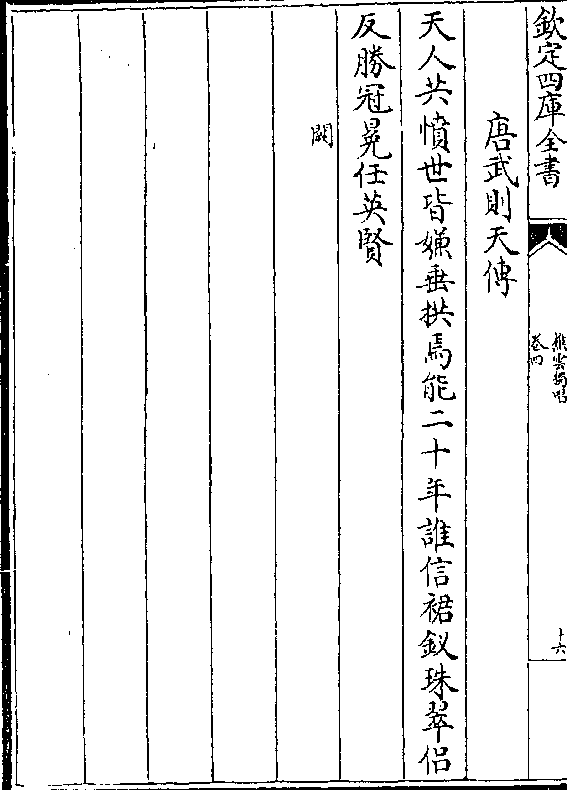 欽定四庫全書
樵雲獨唱
卷四
十六
唐武則天傳
天人共憤世皆嫌垂拱焉能二十年誰信裙釵珠翠侣
反勝冠冕任英賢
闕